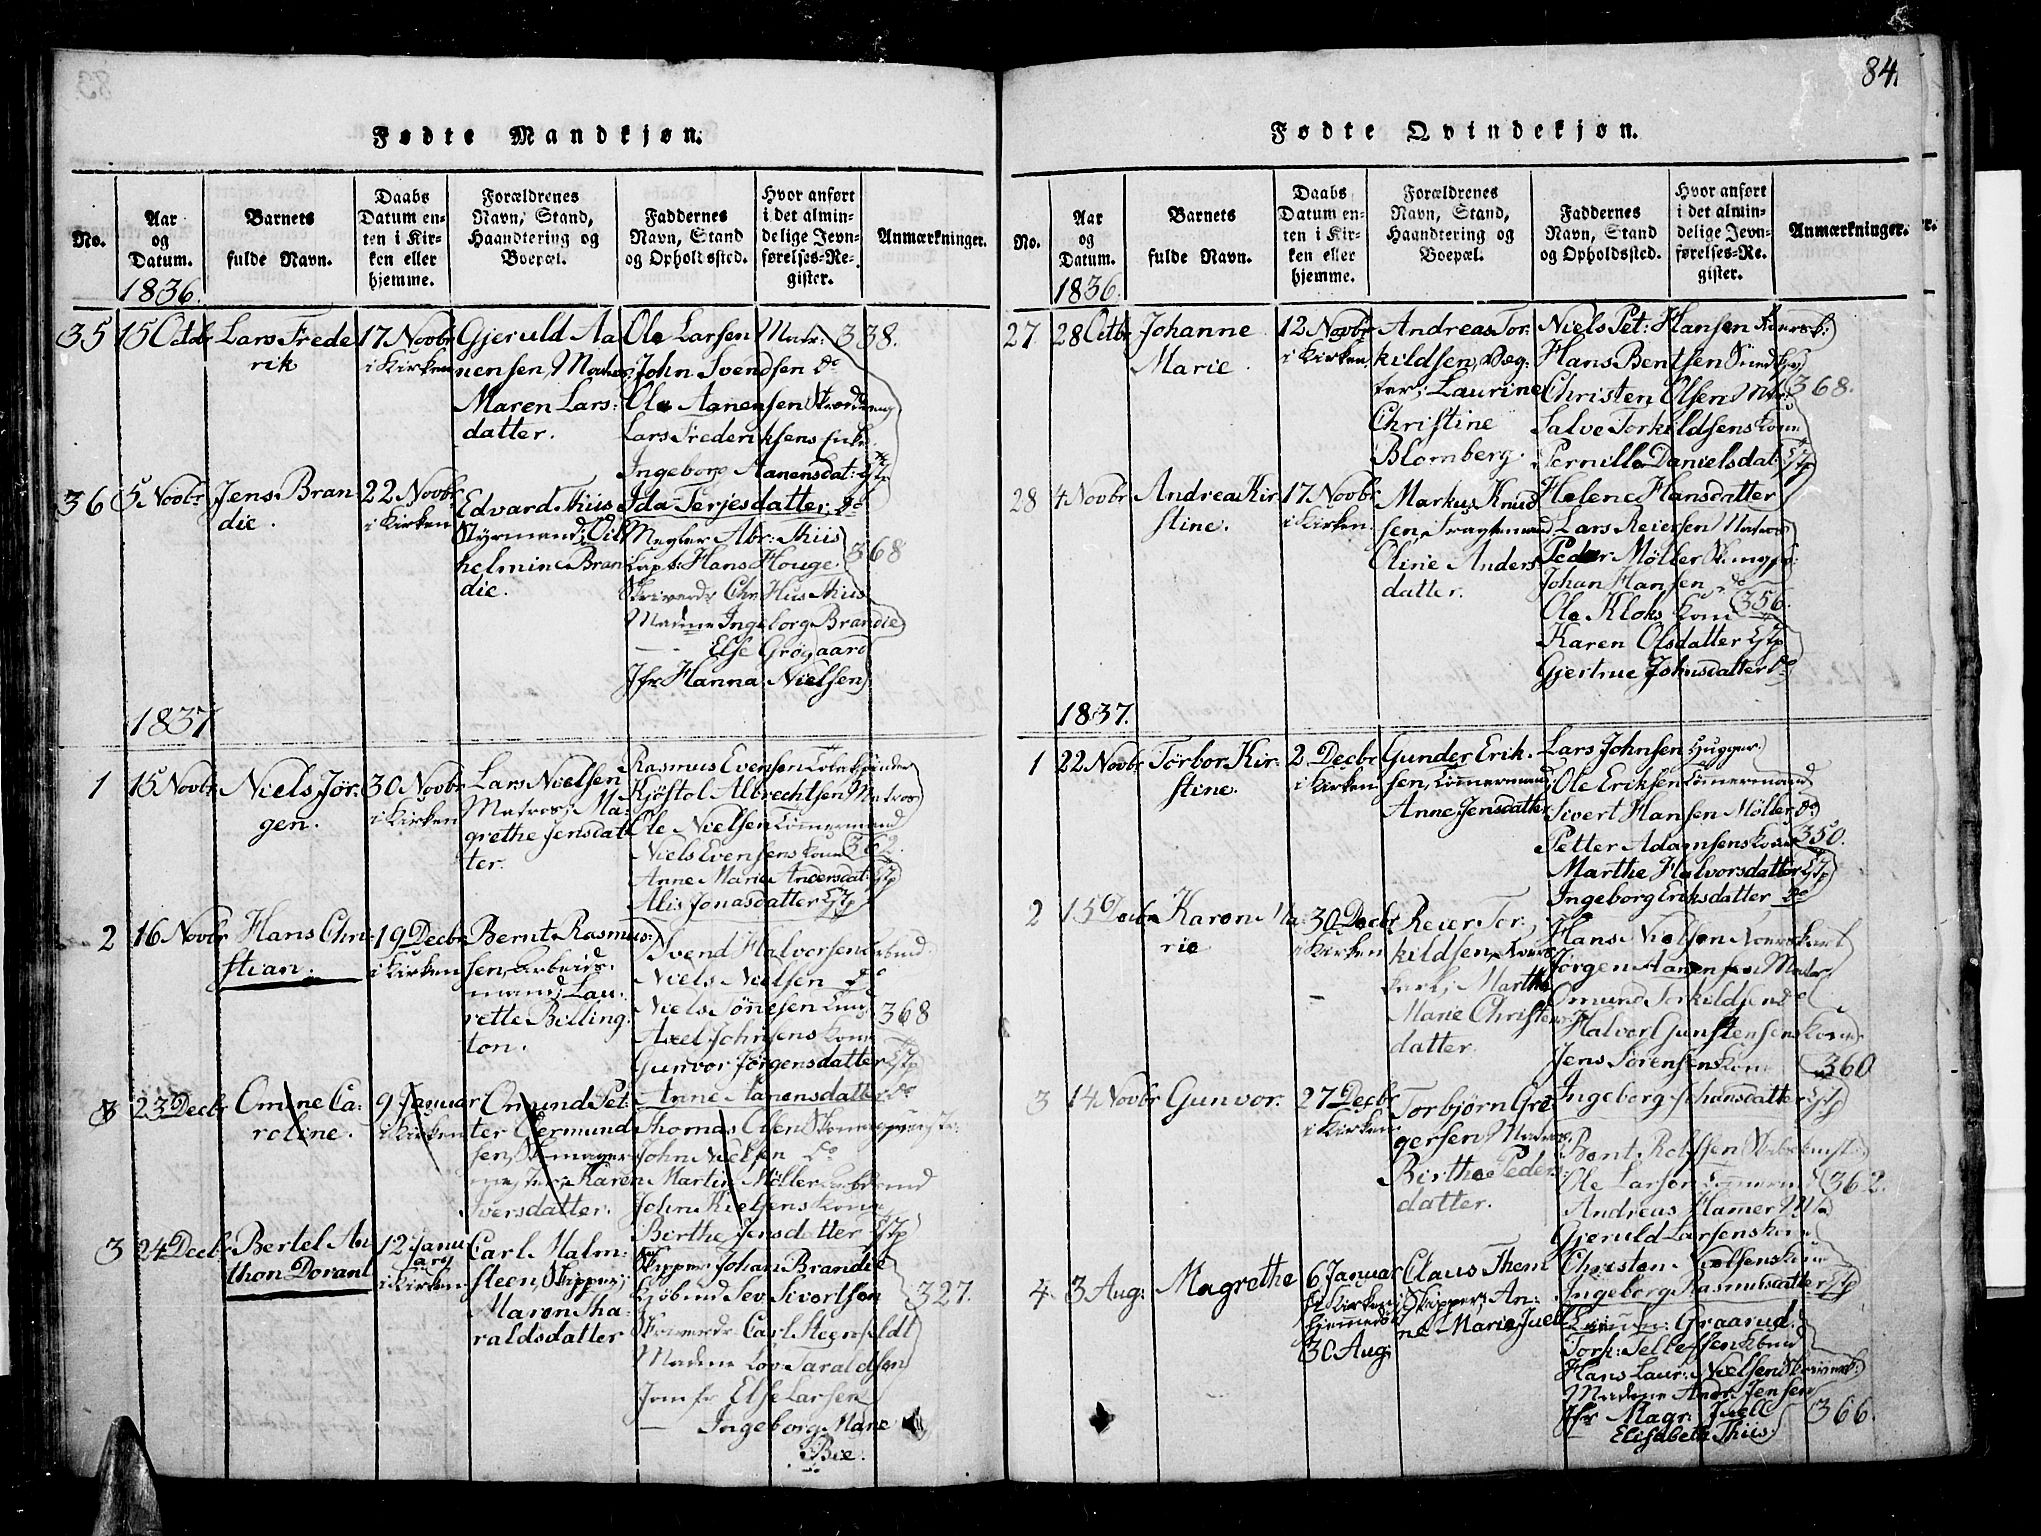 Fødte Mandkjøn.
No.
Aar
og
Datum.
Barnets
fulde Navn.
Daabs
Datum en-
ten i Kir-
ken eller
hjemme.
Forældrenes
Navn, Stand,
Haandtering og
Boepæl.
Faddernes
Navn, Stand
og Opholdssted.
Hvor anført
i det almin-
delige Jevn-
førelses-Re-
gister.
Anmærkninger.
1836.
35
15 Octbr
Lars Frede
rik
17 Novbr
i Kirken
Gjeruld Aa
nensen, Matros,
Maren Lars-
datter.
Ole Larsen Matr:
John Svendsen do
Ole Aanensen
Lars Frederiksens Enke
Ingeborg Aanensdat:
338.
36
5 Novbr
Jens Bran
die.
22 Novbr
i Kirken
Edvard Thiis
Styrmand; Vil
helmine Bran
die.
Ida Terjesdatter do
Megler Abr: Thiis
Capt: Hans Houge
Mad
Ingeborg Brandie
— Else Grögaard
Jfr Hanna Nielsen
368
1837
1
15 Novbr
Niels Jör-
gen.
30 Novbr
i Kirken
Lars Nielsen
Matros, Ma-
grethe Jensdat
ter.
Rasmus Evensen
Kjöstol Albrechtsen Matros
Ole Nielsen Tömermand
Niels Evensens Kone
Anne Marie Andersdat:
Alis Jonasdatter
362.
2
16 Novbr
Hans Chri-
stian.
19 Decbr
i Kirken
Bernt Rasmus-
sen, Arbeids-
mand, Lau-
rette Billing-
ton.
Svend Halvorsen
Niels Nielsen do
Niels Tönesen
Axel Johnsens Kone
Gunvor Jörgensdatter
Anne Aanensdatter do
368
3
23 Decbr
Omine Ca-
roline.
9 Januar
i Kirken
Omund Pet-
ter Germund
sen, Skomager
mester, Karen
Iversdatter.
Thomas Olsen
John Nielsen do
Martin Möller
John Nielsens Kone
Birthe Jensdatter
3
24 Decbr
Bertel An
thon Dorant
12 Janu
ary
i Kirken
Carl Malm-
steen, Skipper,
Maren Tha-
raldsdatter
Skipper Johan Brandie
Sev Sivertsen
Carl Steenfeldt
Madme Lov: Taraldsen
Jomfr Else Larsen
— Ingeborg Marie
Bie.
327.
84.
Fødte Qvindekjøn.
No.
Aar
og
Datum.
Barnets
fulde Navn.
Daabs
Datum en-
ten i Kir-
ken eller
hjemme.
Forældrenes
Navn, Stand,
Haandtering og
Boepæl.
Faddernes
Navn, Stand
og Opholdssted.
Hvor anført
i det almin-
delige Jevn-
førelses-Re-
gister.
Anmærkninger.
1836.
27.
28 Octbr
Johanne
Marie.
12 Novbr
i Kirken
Andreas Tor-
kildsen, Væg-
ter, Laurine
Christine
Blomberg.
Niels Pet: Hansen
Hans Bentsen
Christen Olsen Matr:
Salve Torkildsens Kone
Pernille Danielsdat:
368.
28
4 Novbr
Andrea Kir
stine.
17 Novbr
i Kirken.
Markus Knud
sen, Dragtemand
Oline Anders
datter.
Helene Hansdatter
Lars Reiersen Matros
Peder Möller
Johan Hansen do
Ole Kloks Kone
Karen Olsdatter
Gjertrue Johnsdatter do
356.
1837.
1
22 Novbr
Törbor Kir-
stine.
2 Decbr
i Kirken
Gunder Erik-
sen, Tömermand,
Anne Jensdatter
Lars Johnsen Hugger
Ole Eriksen Tömermand
Sivert Hansen Möller do
Petter Adamsens Kone
Marthe Halvorsdatter
Ingeborg Eriksdatter do
350.
2
15 Decbr
Karen Ma-
rie
30 Decbr
i Kirken
Reier Tor-
kildsen,
Marthe
Marie Christens
datter.
Hans Nielsen
Jörgen Aanensen Matr
Omund Torkildsen do
Halvor Gunstensens Kone
Jens Sörensens Kone
Ingeborg Johansdatter
360
3
14 Novbr
Gunvor.
27 Decbr
i Kirken
Torbjörn Gre
gersen, Matros,
Birthe Peders-
datter.
Bent Rolfsen
Ole Larsen
Andreas Hamer
Gjeruld Larsens Kone
Christen Nielsens Kone
Ingeborg Rasmusdatter
362.
4
3 Aug:
Magrethe
6 Januar
i Kirken,
hjemme
30 Aug
Claus Them
Skipper, An-
ne Marie Juell
Graarud.
Tork: Tellefsen
Hans Laur: Nielsen
Madme Andr: Jensen
Jfr Magr: Juell
Elisabeth Thiis
366.